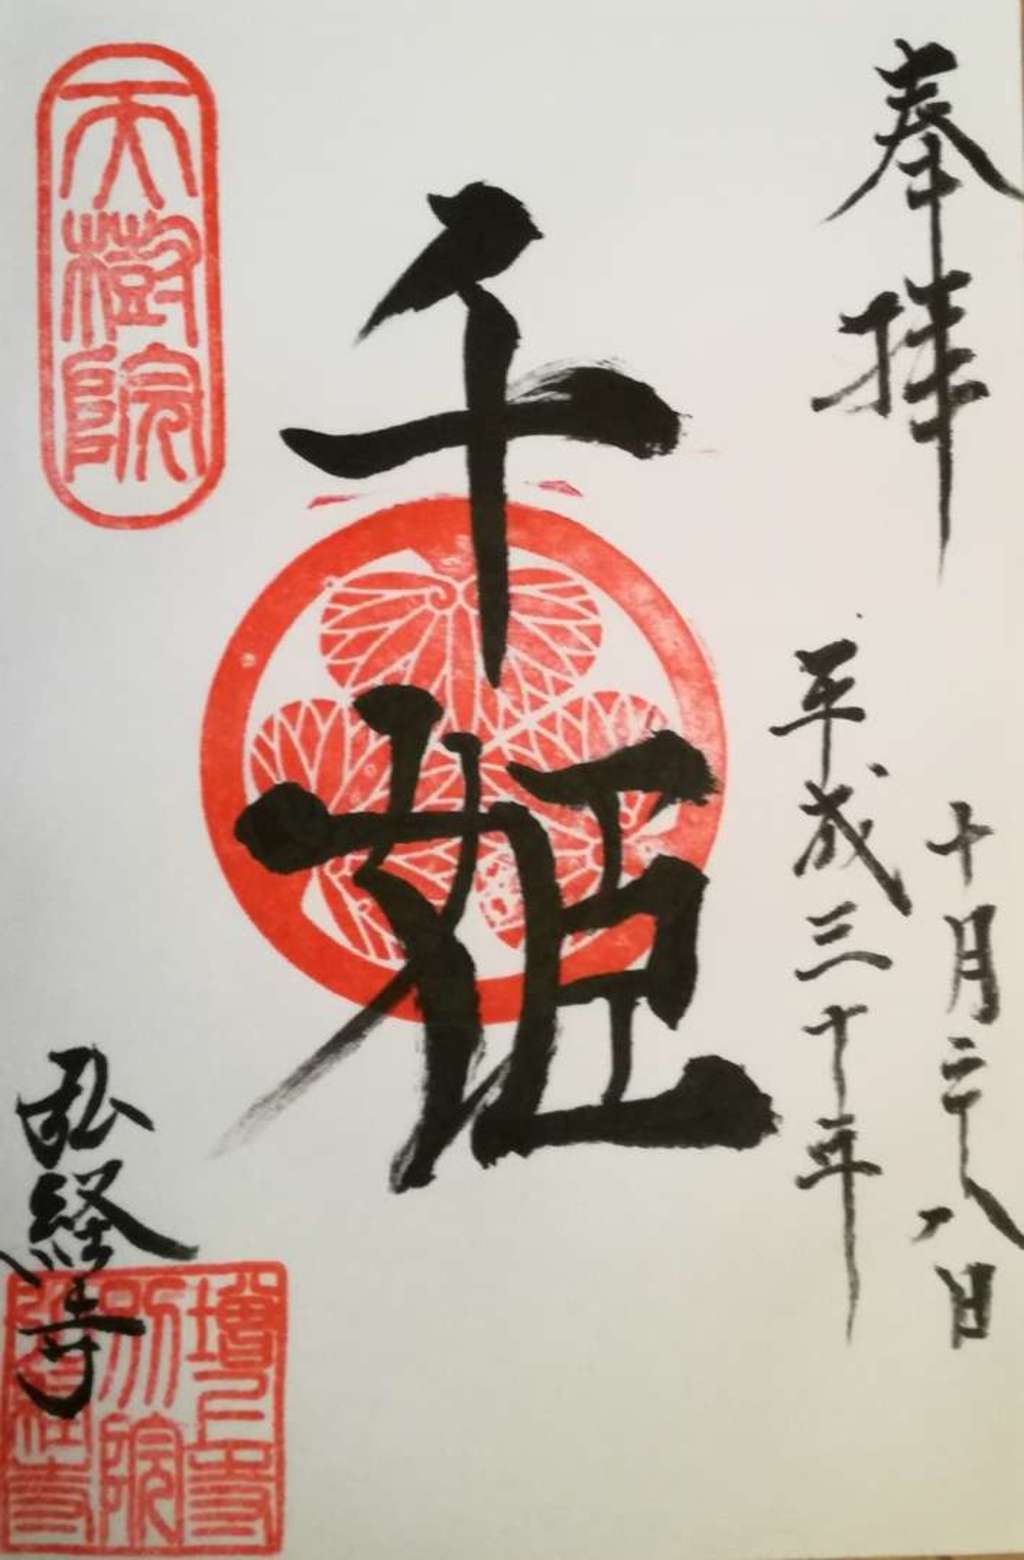 奉拝
十月二十八日
平成三十年
千姫
天樹院
弘経寺
増上寺
別院
弘経寺